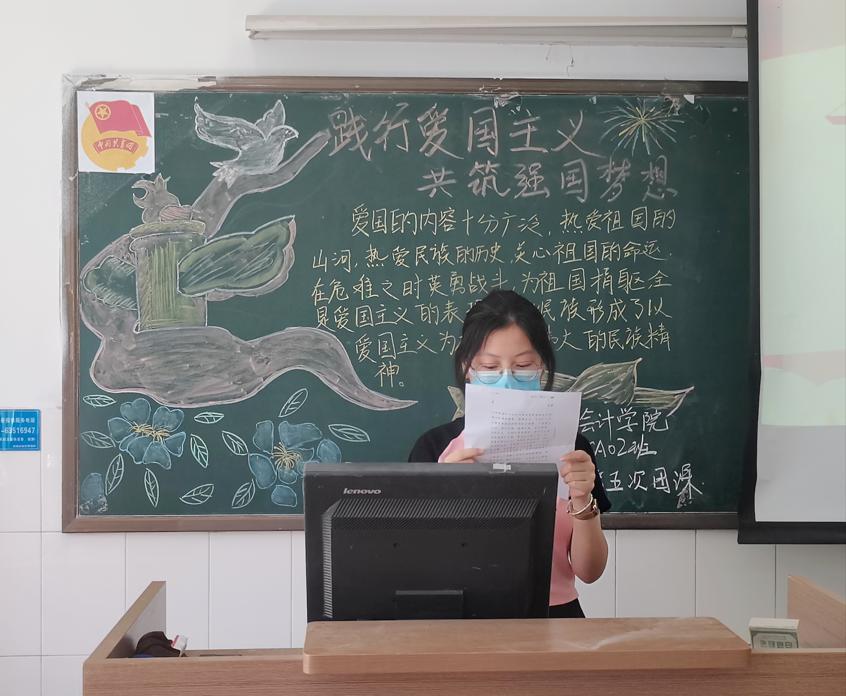 践行爱国主义
共筑强国梦想
爱国的内容十分广泛，热爱祖国的
山河，热爱民族的历史，关心祖国的命运，
在危难之时英勇战斗，为祖国捐躯，全
是爱国主义的表 民族形成了以
爱国主义为 大的民族精
神。
会计学院
五次团课
中国共青团
63516947
lenovo